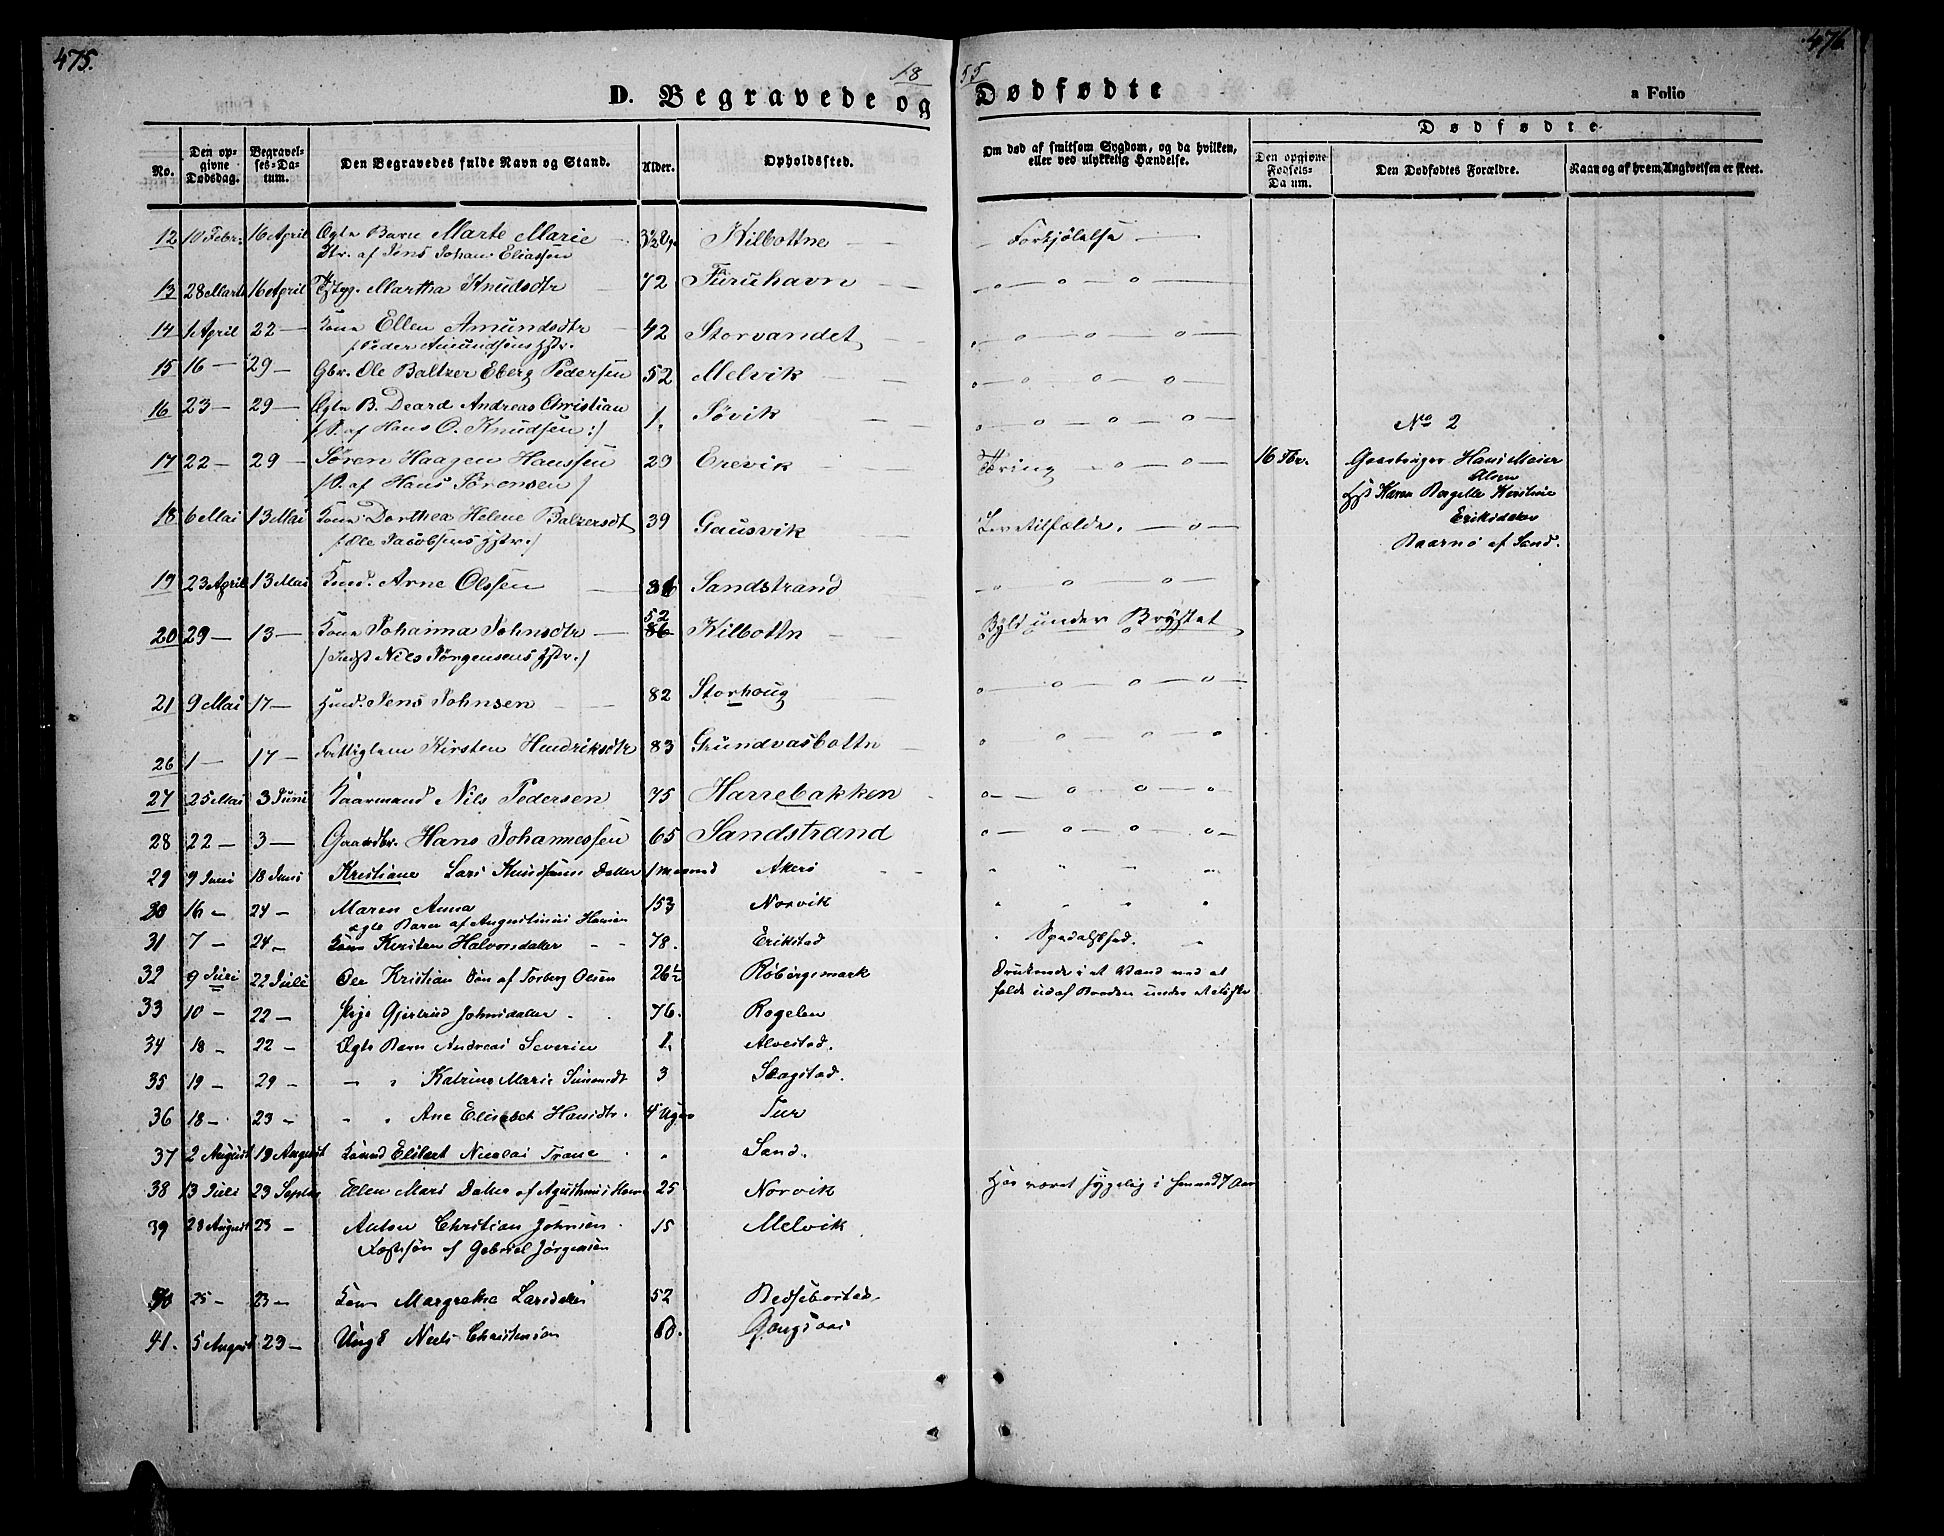 475.
476
18 55
D. Begravede og Dødfødte
a Folio
Dødfødte
No.
Den opgivne Dødsdag.
Begravelses-Datum.
Den Begravedes fulde Navn og Stand.
Alder.
Opholdssted.
Om død af smitsom Sygdom, og da hvilken, eller ved ulykkelig Hændelse.
Den opgivne Fødsels-Da um.
Den Dødfødtes Forældre.
Naar og af hvem Angivelsen er skeet.
12 10 Febr. 16 April Ægte Barn Marte Marie 3½ Ug. Kilbottne Forkjølelse
Dtr. af Jens Johan Eliassen
13 28 Marts 16 April Martha Knudsdtr 72 Furuhavn
14 1 April 22 — Kone Ellen Amundsdtr 42 Storvandet
Peder Amundsens Hstr.
15 16 — 29 — Gbr. Ole Baltzer Eberg Pedersen 52 Melvik
16 23 — 29 — Ægte B. Deard Andreas Christian 1. Søvik
/S. af Hans O. Knudsen:/
No 2
17 22 — 29 — Søren Haagen Hanssen 29 Erevik Tæring 16 Fbr. Gaardbruger Hans Meier
/S. af Hans Sørensen/
Olsen
Hst Karen Bergitte Kirstine
Eriksdatter
18 6 Mai 13 Mai Kone Dorthea Helene Balzersdt 39 Gausvik
/:Ole Jacobsens Hstr./
Baarnø af Sand.
19 23 April 13 Mai Arne Olssen Sandstrand
20 29 — 13 — Kone Johanna Johnsdtr 52 86 Kilbottn Byld under Brystet
/Indst Nils Jørgensens Hstr./
21 9 Mai 17 — Jens Johnsen 82 Storhoug
26 1 — 17 — Fattiglem Kirsten Hendriksdtr 83 Grundvasbottn
27 25 Mai 3 Juni Kaarmand Nils Pedersen 75 Harrebakken
28 22 — 3 — Gaardbr. Hans Johannessen 65 Sandstrand
29 9 Juni 18 Juni Kristiane Lars Knudsens Datter 1 maaned Akerø
30 16 — 24 — Maren Anna 153 Norvik
ægte Barn af Augustinus Hansen
31 7 — 24 — Kone Kirsten Halvorsdatter 78. Erikstad Spedalskhed.
32 9 Juri 22 Juli Ole Kristian Søn af Torberg Olsen 26½ Røbergsmark Druknede i et Vand ved at
falde ud af Baaden under et
33 10 — 22 — Pige Gjertrud Johnsdatter 76. Rogelen
34 18 — 22 — Ægte Barn Andreas Severin 1. Alvestad.
35 19 — 29 — Katrine Marie Simonsdt 3 Slagstad.
36 18 — 23 — Ane Elisabet Hansdtr. 4 Uger Tur
37 2 August 19 August Elibert Nicolai Trane Sand.
38 13 Juli 23 Septbr Ellen Mari Datter af Agustinus Hans 25 Norvik Har været sygelig i henved 7 Aar
39 28 August 23 — Anton Christian Johnsen 15 Melvik
Fostersøn af Gabriel Jørgensen
40 25 — 23 — Kone Margrethe Larsdatter 52
41. 5 August 23 — Ungk Niels Christensen Gangsaas